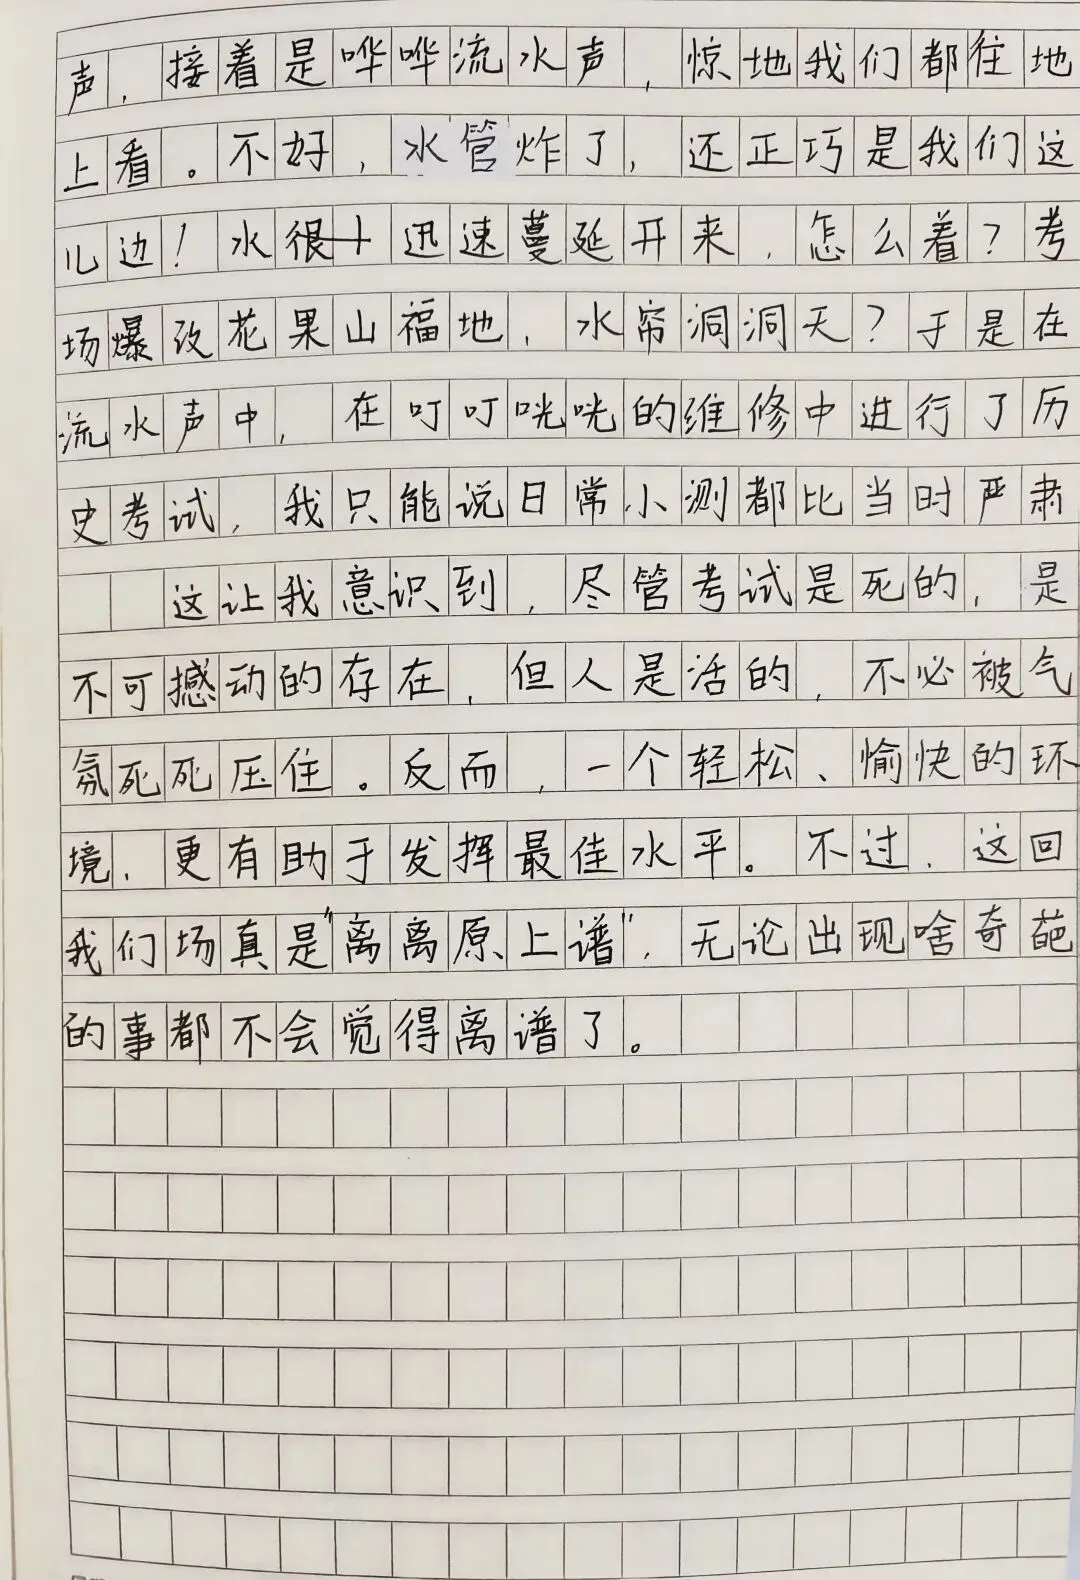 声，接着是哗哗流水声，惊地我们都往地
上看。不好，水管炸了，还正巧是我们这
儿边！水很迅速蔓延开来，怎么着？考
场爆改花果山福地，水帘洞洞天？于是在
流水声中，在叮叮咣咣的维修中进行了历
史考试，我只能说日常小测都比当时严肃
这让我意识到，尽管考试是死的，是
不可撼动的存在，但人是活的，不必被气
氛死死压住。反而，一个轻松、愉快的环
境，更有助于发挥最佳水平。不过，这回
我们场真是"离离原上谱"，无论出现啥奇葩
的事都不会觉得离谱了。